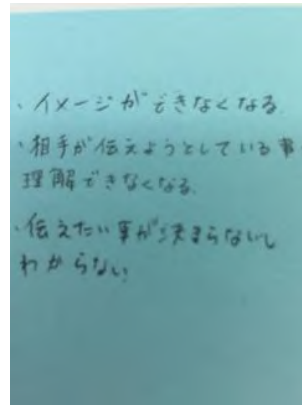 ・イメージができなくなる.
・相手が伝えようとしている事
理解できなくなる.
・伝えたい事が決まらないし
わからない